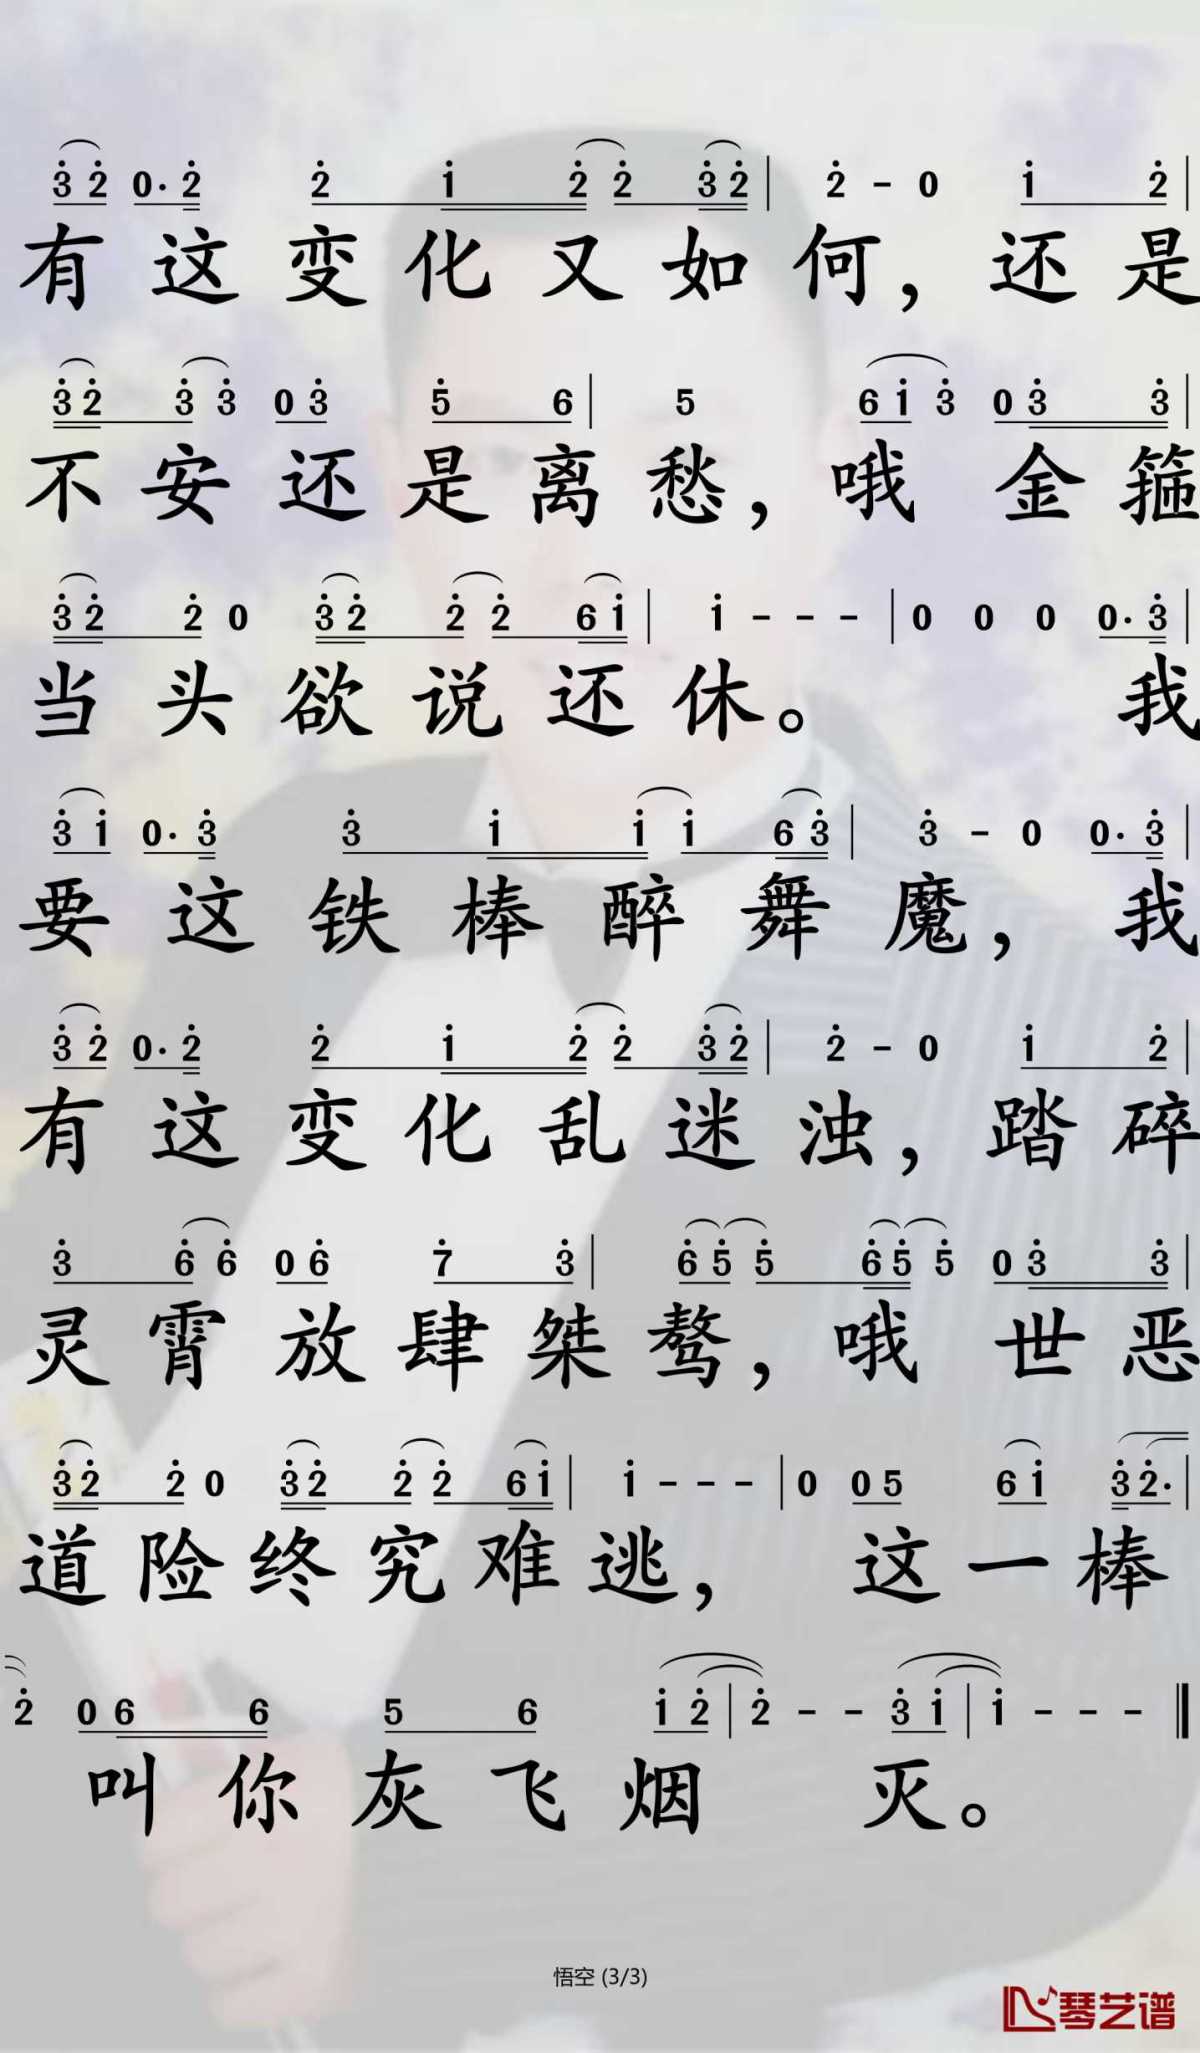 3̇ 2̇ 0· 2̇ 2̇ 1̇ 2̇ 2̇ 3̇ 2̇ | 2̇ - 0 1̇ 2̇ |
有这变化又如何，还是
3̇ 2̇ 3̇ 3̇ 0 3̇ 5̇ 6 | 5 6 1̇ 3̇ 0 3̇ 3̇ |
不安还是离愁，哦 金箍
3̇ 2̇ 2̇ 0 3̇ 2̇ 2̇ 2̇ 6 1̇ | 1̇ - - - | 0 0 0 0· 3̇ |
当头欲说还休。 我
3̇ 1̇ 0· 3̇ 3̇ 1̇ 1̇ 1̇ 6 3̇ | 3̇ - 0 0· 3̇ |
要这铁棒醉舞魔，我
3̇ 2̇ 0· 2̇ 2̇ 1̇ 2̇ 2̇ 3̇ 2̇ | 2̇ - 0 1̇ 2̇ |
有这变化乱迷浊，踏碎
3̇ 6̇ 6̇ 0 6̇ 7̇ 3̇ | 6̇ 5̇ 5̇ 6̇ 5̇ 5̇ 0 3̇ 3̇ |
灵霄放肆桀骜，哦 世恶
3̇ 2̇ 2̇ 0 3̇ 2̇ 2̇ 2̇ 6 1̇ | 1̇ - - - | 0 0 5 6 1̇ 3̇ 2̇· |
道险终究难逃， 这一棒
2̇ 0 6 6 5 6 1̇ 2̇ | 2̇ - - 3̇ 1̇ | 1̇ - - - ‖
叫你灰飞烟 灭。
悟空 (3/3)
琴艺谱